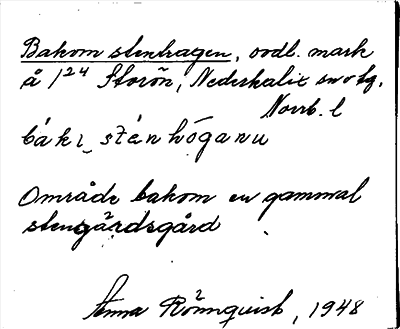 Bakom stenhagen, oodl. mark
å 1²⁴ Storön, Nederkalix snotg,
Norrb. l
bákı_ sténhóganu
Område bakom en gammal
stengärdsgård
Anna Rönnquist, 1948